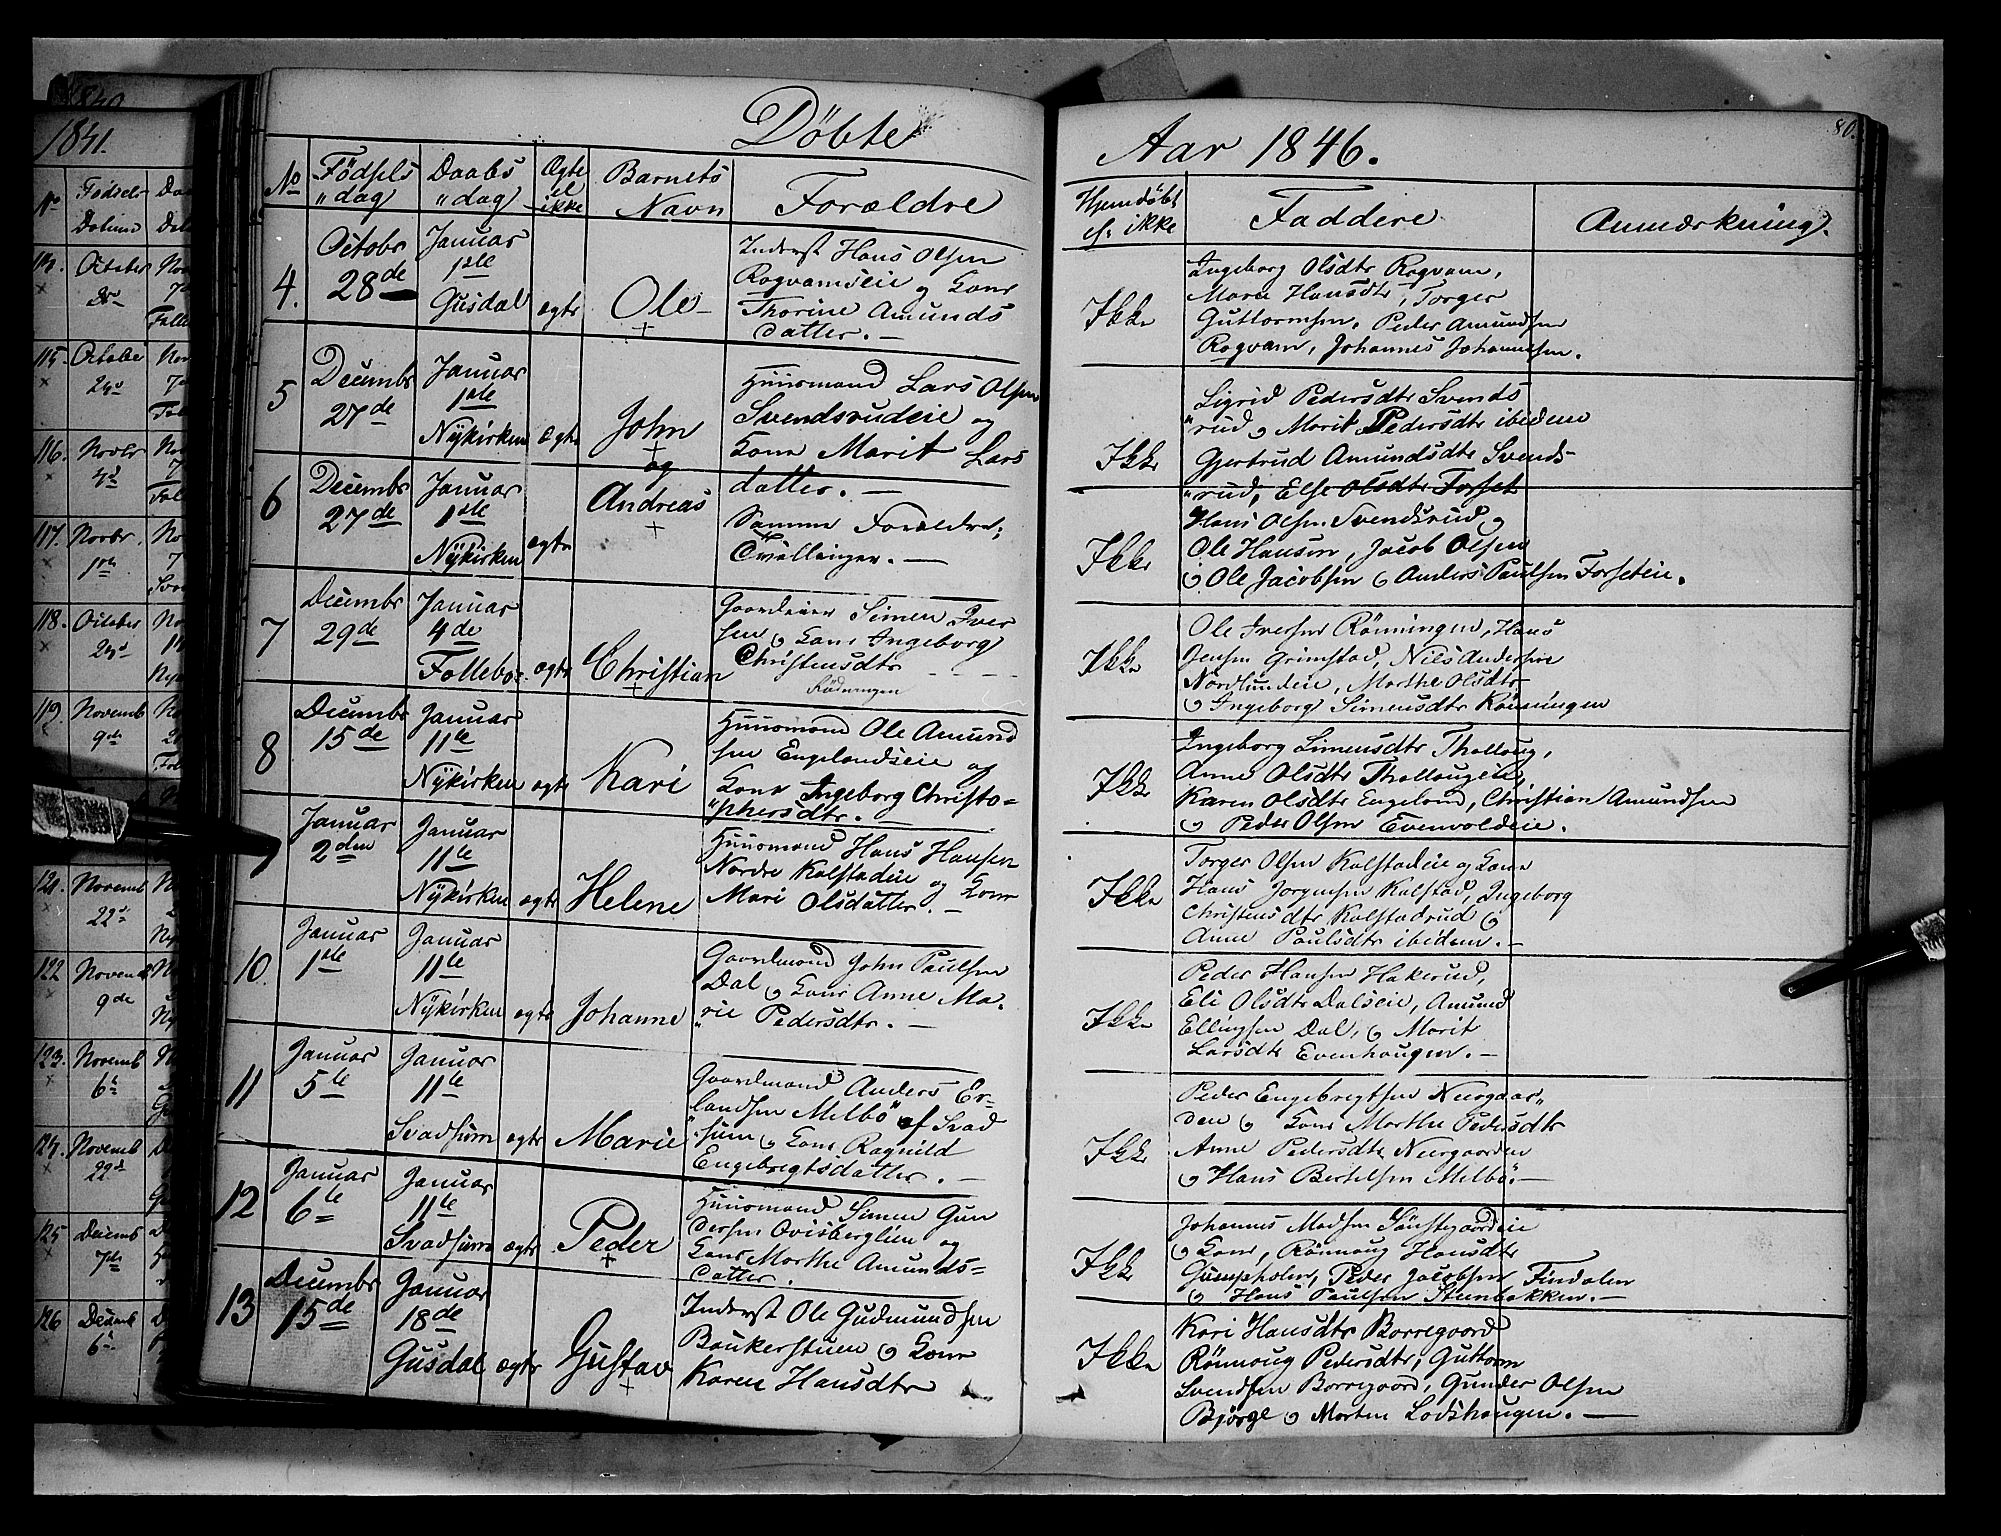 Døbte
Aar 1846.
80.
No
Fødsels
"dag
Daabs
"dag
Ægte
el
ikke
Barnets
Navn
Forældre
Hjemdøbt
el. ikke
Faddere
Anmærkning.
4.
Octobr
28de
Januar
1ste
Gusdal
ægte
Ole
Inderst Hans Olsen
Rogvamseie og Kone
Thorine Amunds
datter. —
Ikke
Ingeborg Olsdtr Rogvam,
Marie Hansdtr, Torger
Guttormsen, Peder Amundsen
Rogvam, Johannes Johannesen.
5
Decembr
27de
Januar
1ste
Nykirken
Ægte
John
og
Huusmand Lars Olsen
Svendsrudeie og
Kone Marit Lars
datter. —
Ikke
Sigrid Pedersdtr Svends
"rud, Marit Pedersdtr ibidem
Gjertrud Amundsdtr Svends-
"rud, Else Olsdtr Forset
6
Decembr
27de
Januar
1ste
Nykirken
ægte
Andreas
Samme Forældre;
Tvillinger. —
Ikke
Hans Olsen Svendsrud og
Ole Hansen, Jacob Olsen
og Ole Jacobsen og Anders Paulsen Forseteie.
7
Decembr
29de
Januar
4de
Follebo
ægte
Christian
Gaardeier Simen Iver
sen og Kone Ingeborg
Christensdtr
Rødningen
Ikke
Ole Iversen Rønningen, Hans
Jensen Grimstad, Nils Andersen
Nordlundeie, Marthe Olsdtr
og Ingeborg Simensdtr Rønningen
8
Decembr
15de
Januar
11te
Nykirken
ægte
Kari
Huusmand Ole Amund
sen Engelandseie og
Kone Ingeborg Christo=
"phersdtr. —
Ikke
Ingeborg Simensdtr Thallaug,
Anne Olsdtr Thallaugeie,
Karen Olsdtr Engeland, Christian Amundsen
og Peder Olsen Evenvoldeie.
Januar
2den
Januar
11te
Nykirken
ægte
Helene
Huusmand Hans Hansen
Nordre Kalstadeie og Kone
Mari Olsdatter. —
Ikke
Torger Olsen Kalstadeie og Kone
Hans Jørgensen Kalstad, Ingeborg
Christensdtr Kalstadrud og
Anne Paulsdtr ibidem. —
10.
Januar
1ste
Januar
11te
Nykirken
ægte
Johanne
Gaardmand John Paulsen
Dal og Kone Anne Ma-
"rie Pedersdtr. —
Ikke
Peder Hansen Hakerud,
Eli Olsdtr Dalseie, Amund
Ellingsen Dal, og Marit
Larsdtr Evenhaugen. —
11
Januar
5te
Januar
11te
Svadsum
ægte
Marie
Gaardmand Anders Er=
landsen Melbø af Svad
"sum og Kone Ragnild
Engebrigtsdatter. —
Ikke
Peder Engebrigtsen Nurgaar"
den og Kone Marthe Pedersdtr
Anne Pedersdtr Nurgaarden
og Hans Bertelsen Melbø. —
12
Januar
6te
Januar
11te
Svadsum
ægte
Peder
Huusmand Simen Gun
dersen Qvisberglien og
Kone Marthe Amunds=
datter.
Ikke
Johannes Madsen
og Kone, Rønnoug Hansdtr
Gumpholen, Peder Jacobsen Findalen
og Hans Paulsen Stenbakken. —
13
Decembr
15de
Januar
18de
Gusdal
ægte
Gustav
Inderst Ole Gudmundsen
Baukerstuen og Kone
Karen Hansdtr
Ikke
Kari Hansdtr Borregaard
Rønnoug Pedersdtr, Guttorm
Svendsen Borregaard, Gunder Olsen
Bjørge og Morten Lodshaugen. —
1841.
No
Fødsels
Datum
October
115.
October
116.
Novbr
117.
Novbr.
118.
October
119.
Novemb
9de
121.
Novemb
22
122
Novemb
9de
123.
Novemb
6
124.
Novemb
22
125
Decemb
7de
126
Decemb
6